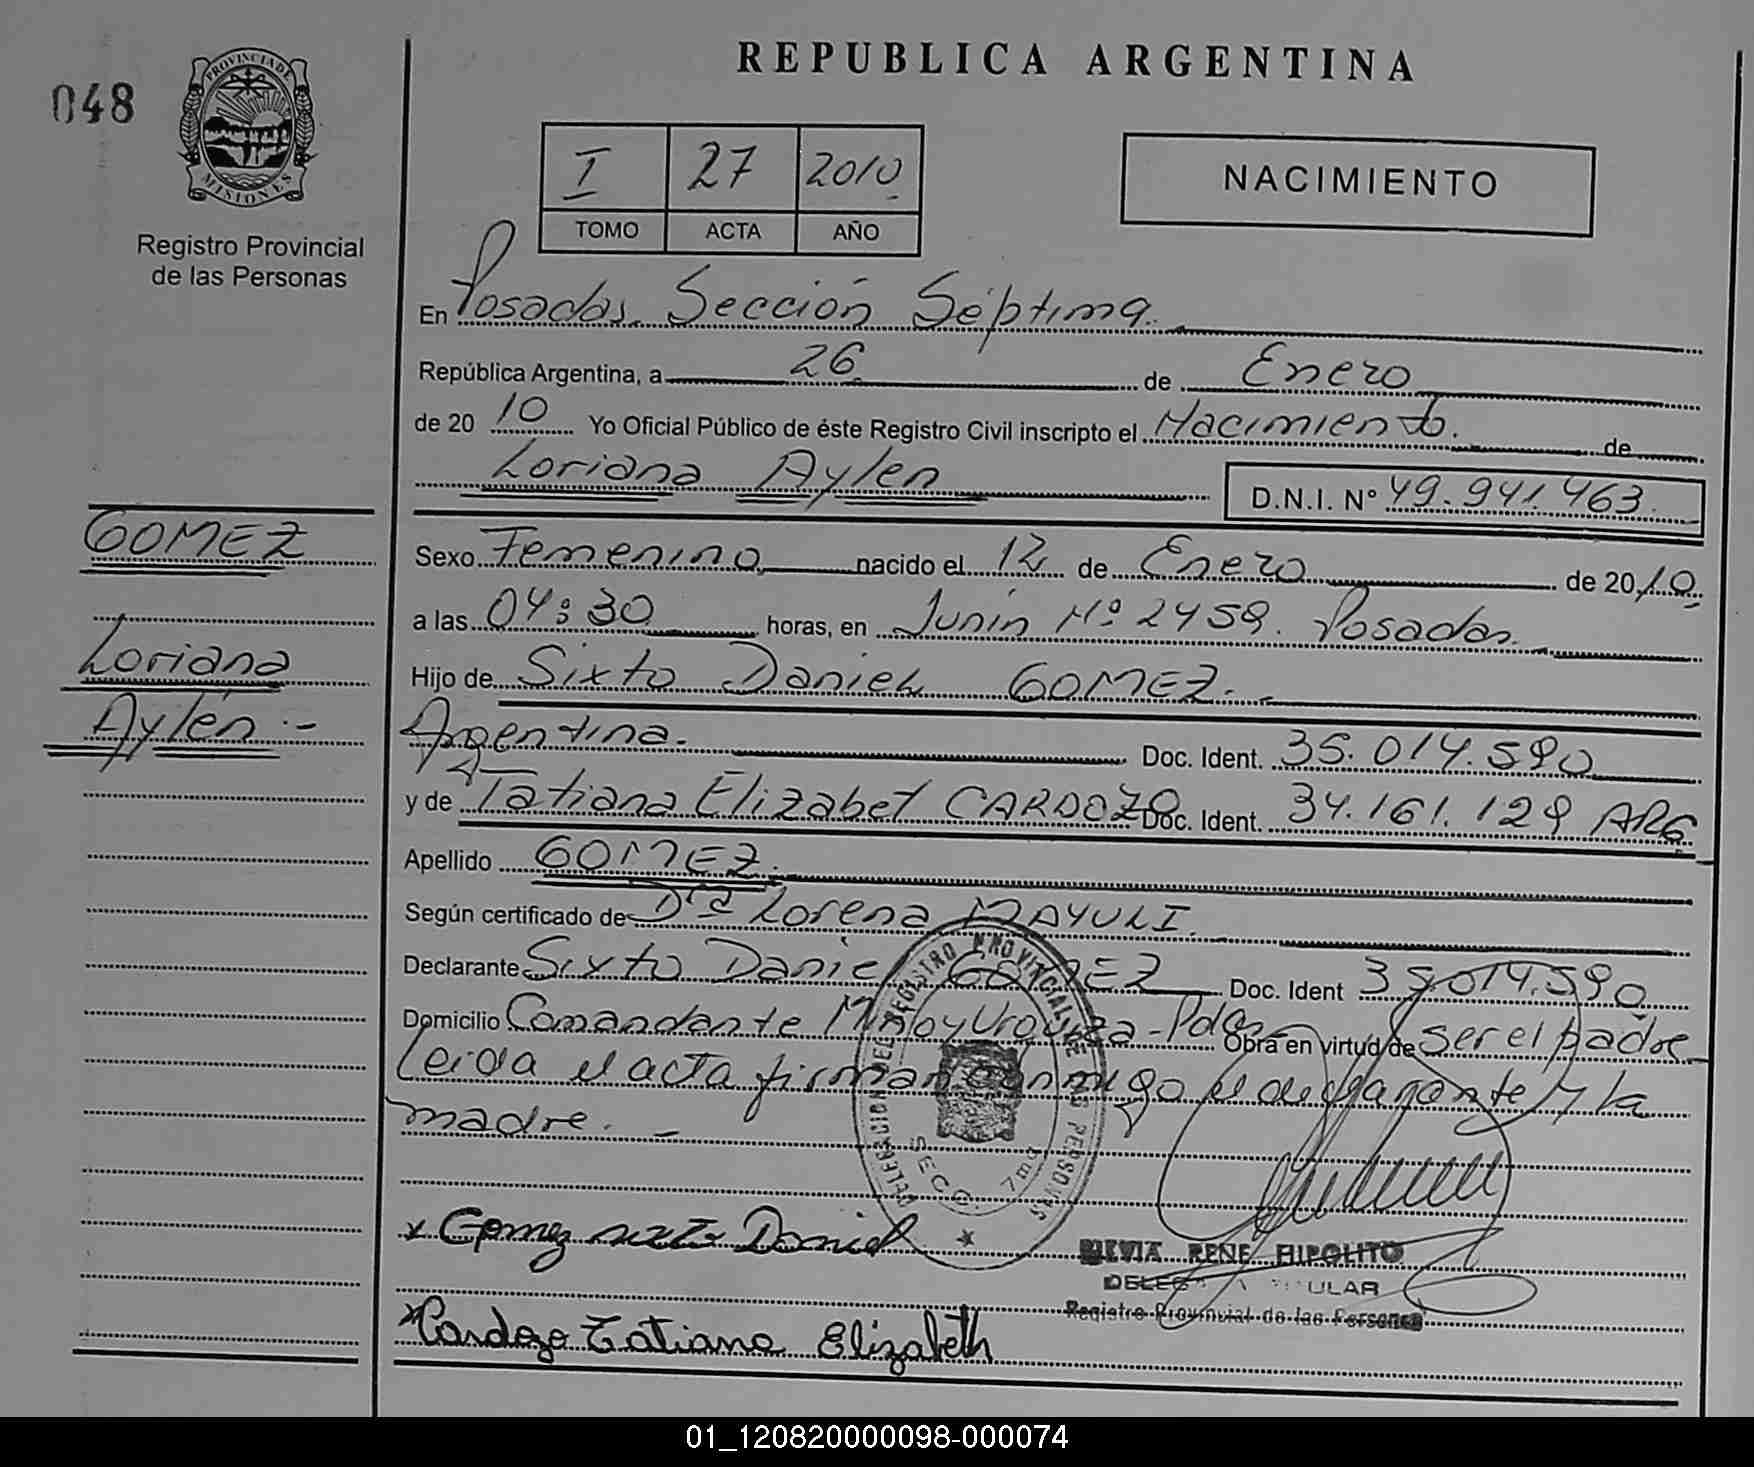 048
PROVINCIA DE
MISIONES
Registro Provincial
de las Personas
REPUBLICA ARGENTINA
I 27 2010
TOMO ACTA AÑO
NACIMIENTO
En Posadas Sección Séptima.
República Argentina, a 26 de Enero
de 20 10 Yo Oficial Público de éste Registro Civil inscripto el Nacimiento. de
Loriana Aylen D.N.I. N° 49.941.463
GOMEZ
Loriana
Aylén.-
Sexo Femenino nacido el 12 de Enero de 2010
a las 04:30 horas, en Junín Nº 2459. Posadas.
Hijo de Sixto Daniel GOMEZ.
Argentina. Doc. Ident. 35.014.590
y de Tatiana Elizabet CARDOZO Doc. Ident. 34.161.129 ARG.
Apellido GOMEZ.
Según certificado de Drª Lorena MAYULI.
Declarante Sixto Daniel GOMEZ Doc. Ident 35.014.590
Domicilio Comandante Urquiza-Pdas Obra en virtud de ser el padre
Leida el acta firman conmigo el declarante y la
madre. -
DELEGACION DEL REGISTRO PROVINCIAL DE LAS PERSONAS
SECC. 7ma
x Gomez sixto Daniel
SILVIA RENE HIPOLITO
DELEGADA TITULAR
Registro Provincial de las Personas
x Cardozo Tatiana Elizabeth
01_120820000098-000074